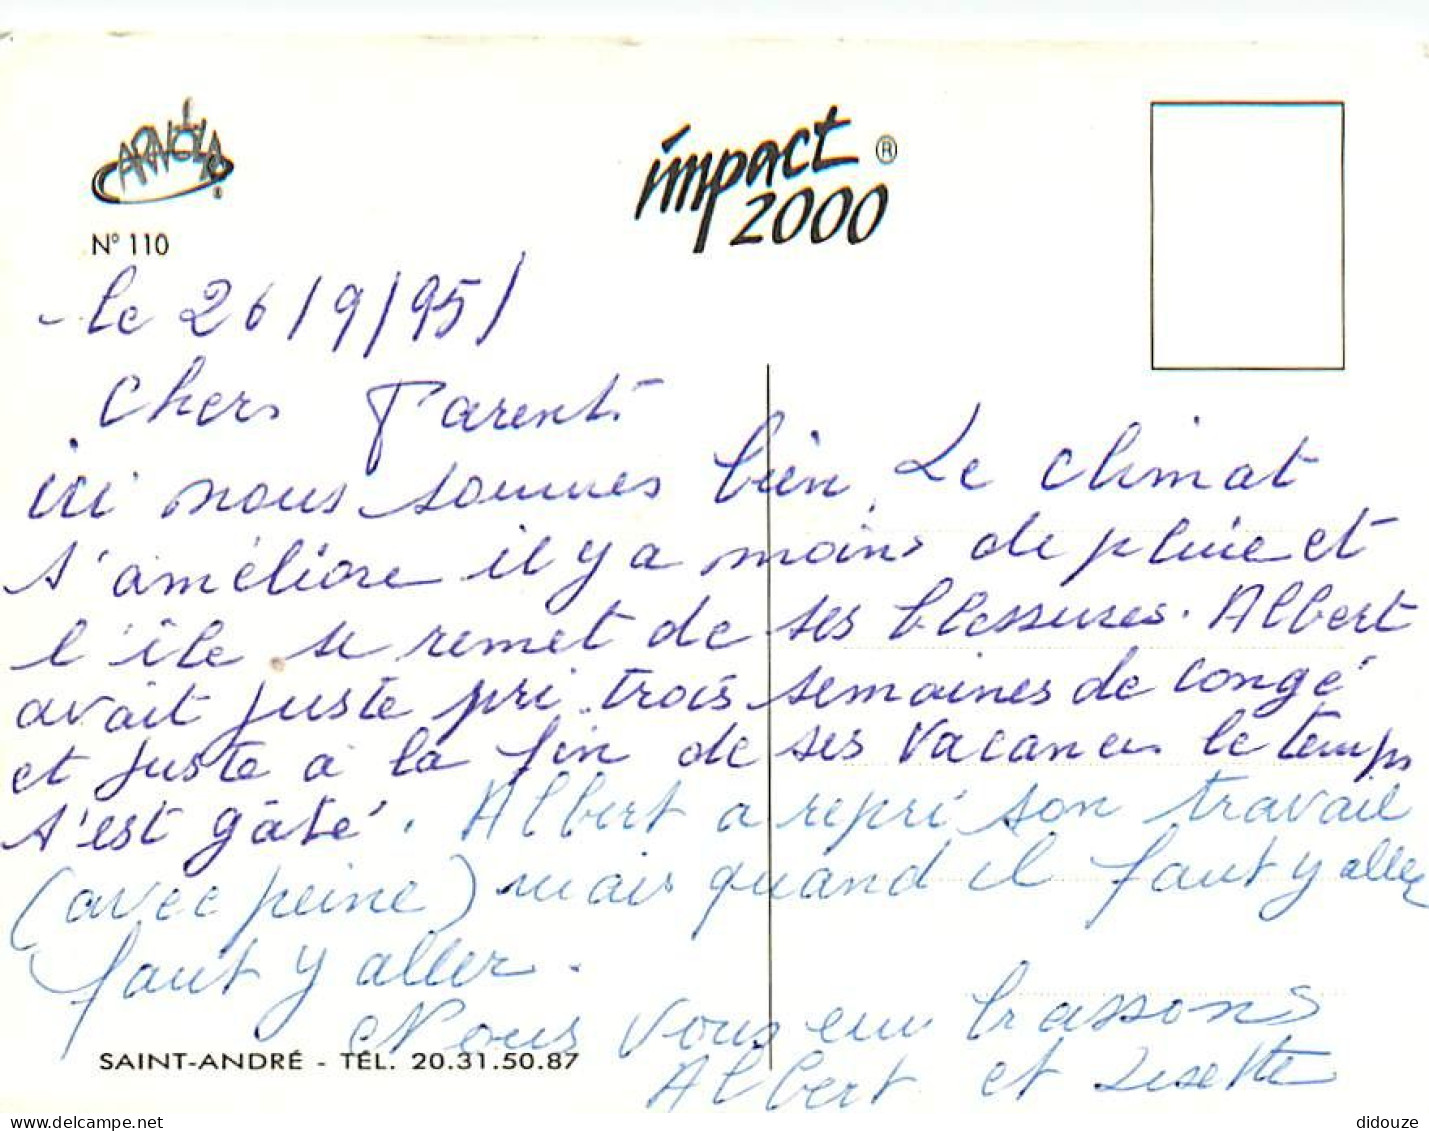 ARNOLA
®
N° 110
impact ®
2000
- le 26/9/95/
Chers Parents
ici nous sommes bien, Le climat
s'améliore il y a moins de pluie et
l'île se remet de ses blessures. Albert
avait juste pri trois semaines de congé
et juste à la fin de ses vacances le temps
s'est gâté. Albert a repri son travail
(avec peine) mais quand il faut y aller
faut y aller.
Nous vous embrassons
SAINT-ANDRÉ - TÉL. 20.31.50.87
Albert et Lisette
www.delcampe.net
didouze